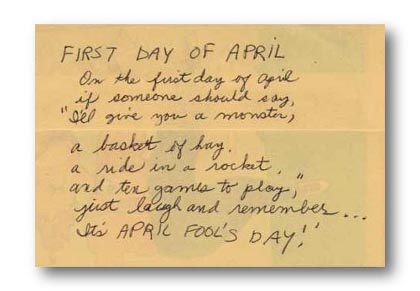 FIRST DAY OF APRIL
On the first day of april
if someone should say,
"I'll give you a monster,
a basket of hay.
a ride in a rocket,
and ten games to play,"
just laugh and remember...
It's APRIL FOOL'S DAY!'